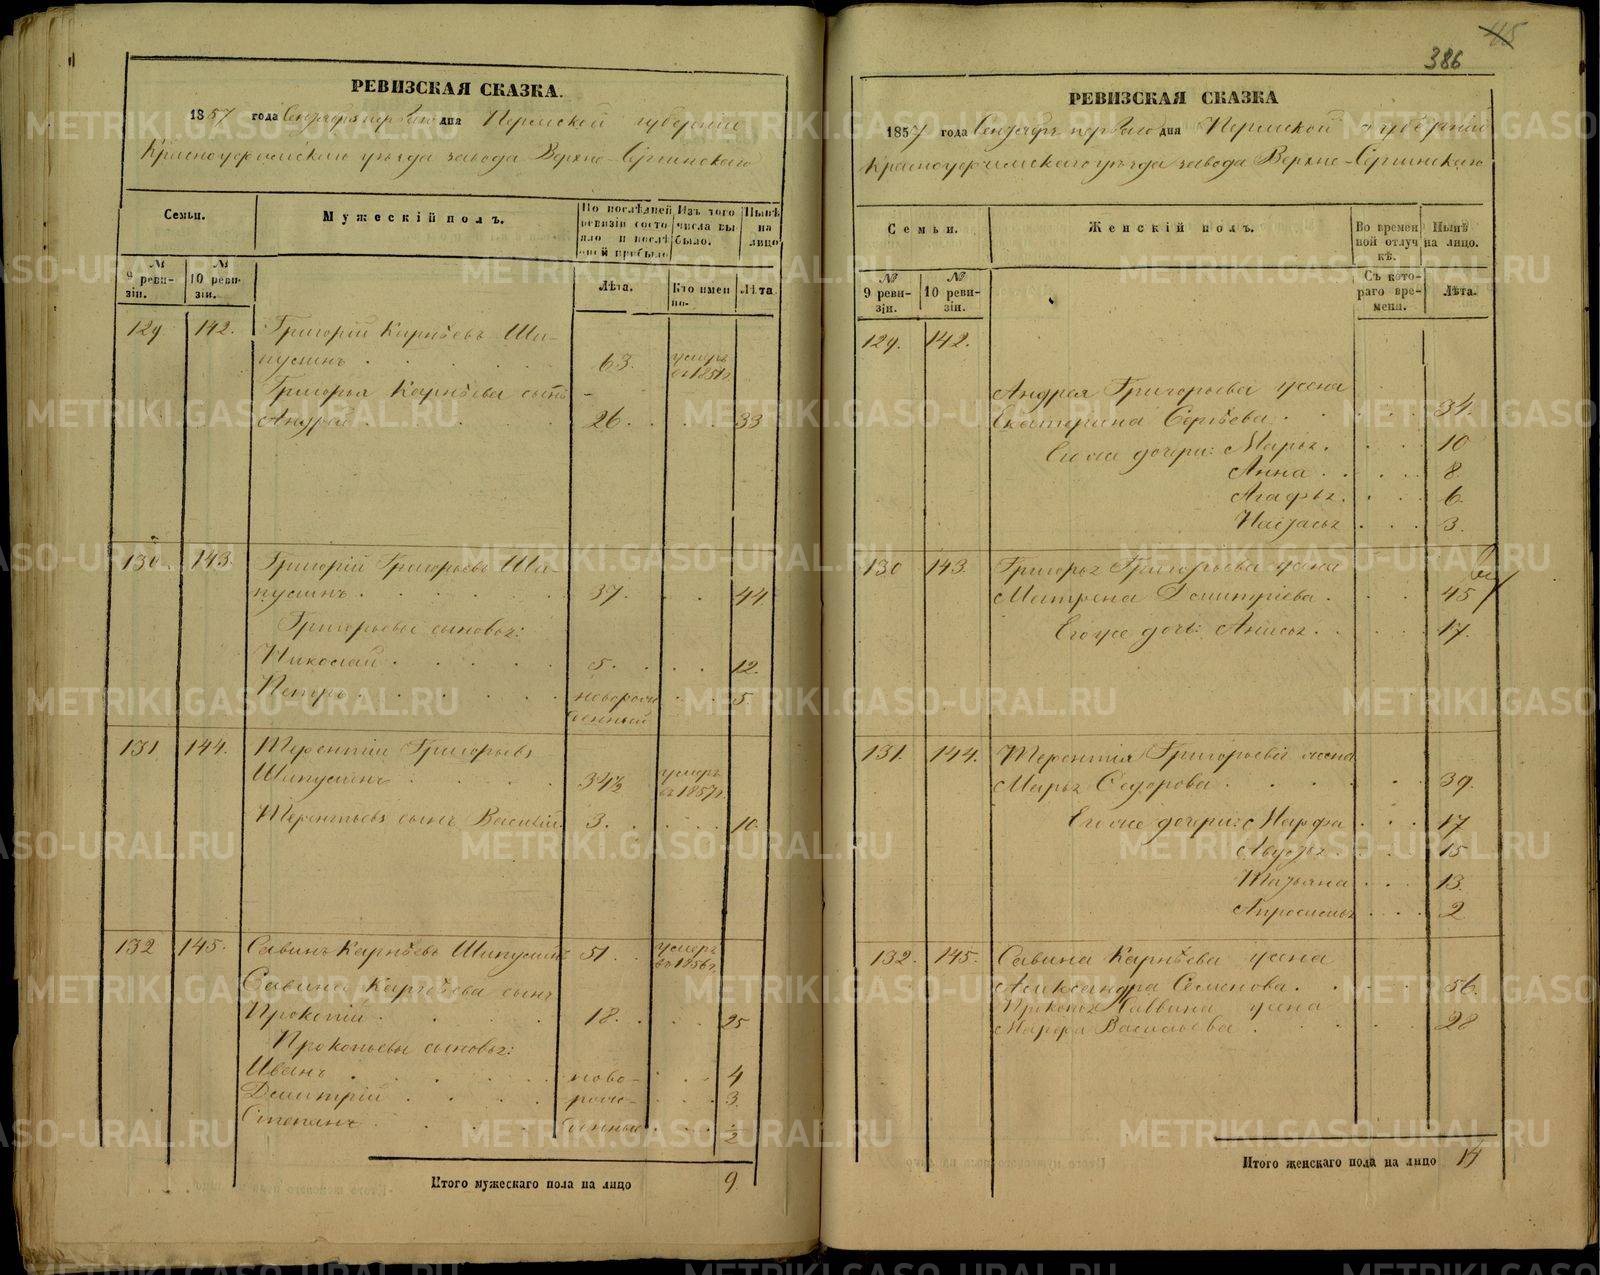 РЕВИЗСКАЯ СКАЗКА.
1857 года Сентября первого дня Пермской губернии
Красноуфимского уезда завода Верхне-Сергинского
Семьи.
Мужескій полъ.
По послѣдней ревизіи состояло и послѣ оной прибыло
Изъ того числа выбыло.
Нынѣ на лицо
№ 9 ревизіи.
№ 10 ревизіи.
Лѣта.
Кто именно.
Лѣта
129 142. Григорій Карпѣевъ Ши-
пусинъ . 63. умеръ въ 1851 г.
Григорья Карпѣева сынъ
Андрей 26. 33
130. 143. Григорій Григорьевъ Ши-
пусинъ 37. 44
Григорьевы сыновья:
Николай 5. 12.
Петръ новорожденный 5.
131 144. Терентій Григорьевъ
Шипусинъ 34½ умеръ въ 1857 г.
Терентьевъ сынъ Василій 3. 10.
132 145. Савинъ Карпѣевъ Шипусинъ 51. умеръ въ 1856 г.
Савина Карпѣева сынъ
Прокопій 18. 25
Прокопьевы сыновья:
Иванъ ново- 4
Дмитрій рож- 3.
Степанъ денные ½
Итого мужескаго пола на лицо 9
386
45
РЕВИЗСКАЯ СКАЗКА
1857 года Сентября первого дня Пермской губерніи
Красноуфимскаго уезда завода Верхне-Сергинского
Семьи.
Женскій полъ.
Во временной отлучкѣ.
Нынѣ на лицо.
№ 9 ревизіи.
№ 10 ревизіи.
Съ котораго времени.
Лѣта.
129. 142.
Андрея Григорьева жена
Екатерина Сергѣева 34.
Его же дочери: Марья. 10
Анна 8
Агафья. 6.
Настасья 3.
130 143. Григорья Григорьева жена
Матрена Дмитріева. 45
Его же дочь: Анисья. 17.
131. 144. Терентія Григорьева жена
Марья Сидорова 39.
Его же дочери: Марфа 17
Авдотья 15
Татьяна 13.
Апросинья 2
132. 145. Савина Карпѣева жена
Александра Семенова. 56.
Прокопья Саввина жена
Марфа Васильева 28
Итого женскаго пола на лицо 14
METRIKI.GASO-URAL.RU